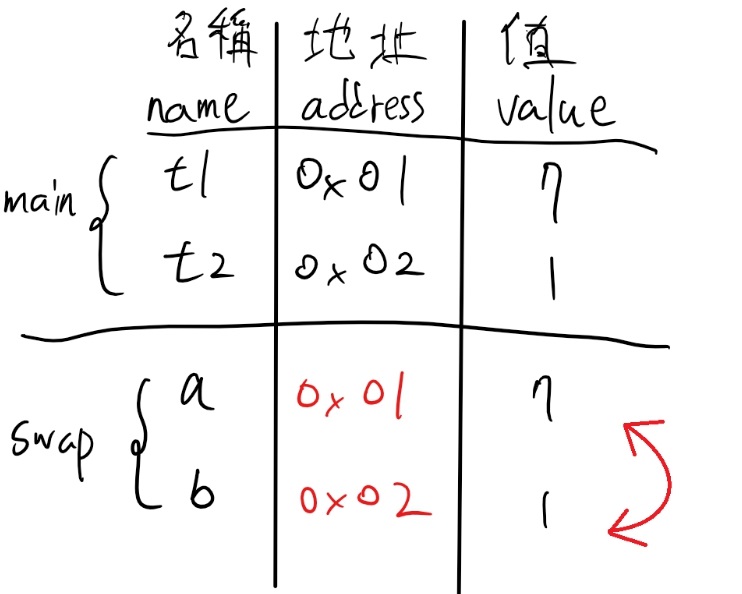 名稱 地址 值
name address value
main t1 0x01 7
t2 0x02 1
swap a 0x01 7
b 0x02 1